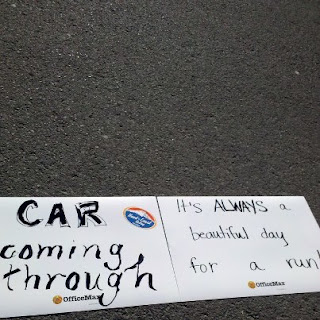 CAR
coming
through
OfficeMax
It's ALWAYS a
beautiful day
for a run!
OfficeMax